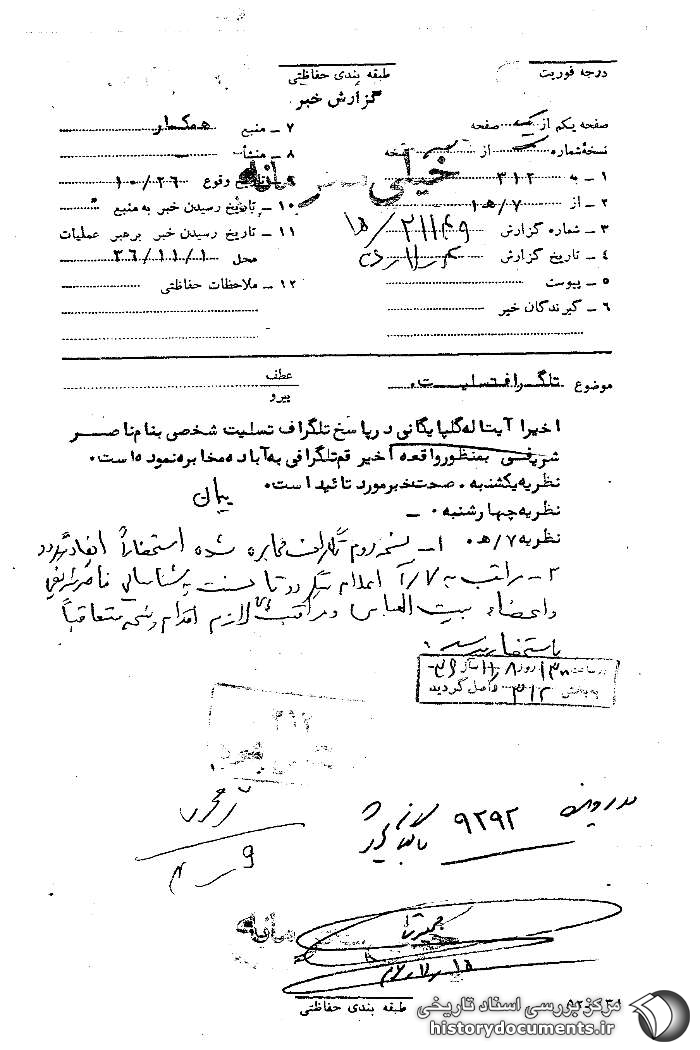 درجه فوریت
طبقه بندی حفاظتی
گزارش خبر
صفحه یکم از یک صفحه
نسخه شماره از نسخه
۱ - به ۳۱۲
۲ - از ۷/ه‍ ۱
۳ - شماره گزارش ۲۱۱۴۹/ه‍ ۱
۴ - تاریخ گزارش
۵ - پیوست
۶ - گیرندگان خبر
۷ - منبع همکار
۸ - منشأ
۹ - تاریخ وقوع ۱۰/۲۶
۱۰ - تاریخ رسیدن خبر به منبع
۱۱ - تاریخ رسیدن خبر برهبر عملیات
محل ۳۶/۱۱/۱
۱۲ - ملاحظات حفاظتی
خیلی محرمانه
موضوع تلگراف تسلیت.
عطف
پیرو
اخیرا آیت اله گلپایگانی در پاسخ تلگراف تسلیت شخصی بنام ناصر
شریفی بمنظور واقعه اخیر قم تلگرافی به آباده مخابره نموده است.
نظریه یکشنبه . صحت خبر مورد تائید است. پیمان
نظریه چهارشنبه . -
نظریه ۷/ه‍ . ۱- نسخه دوم تلگراف مخابره شده استحضاراً ایفاد میگردد
۲- مراتب به اعلام گردید تا نسبت به شناسائی ناصر شریفی
و اعضاء بیت العباس و مراقبت لازم اقدام و نتیجه متعاقباً
باستحضار میرسد.
در ساعت ۱۳۰۰ روز ۸/۱۱ سال ۳۶
به بخش ۳۱۲ واصل گردید
۳۱۲
در پرونده ۹۲۹۲
بایگانی شود
محرمانه
طبقه بندی حفاظتی
مرکز بررسی اسناد تاریخی
historydocuments.ir